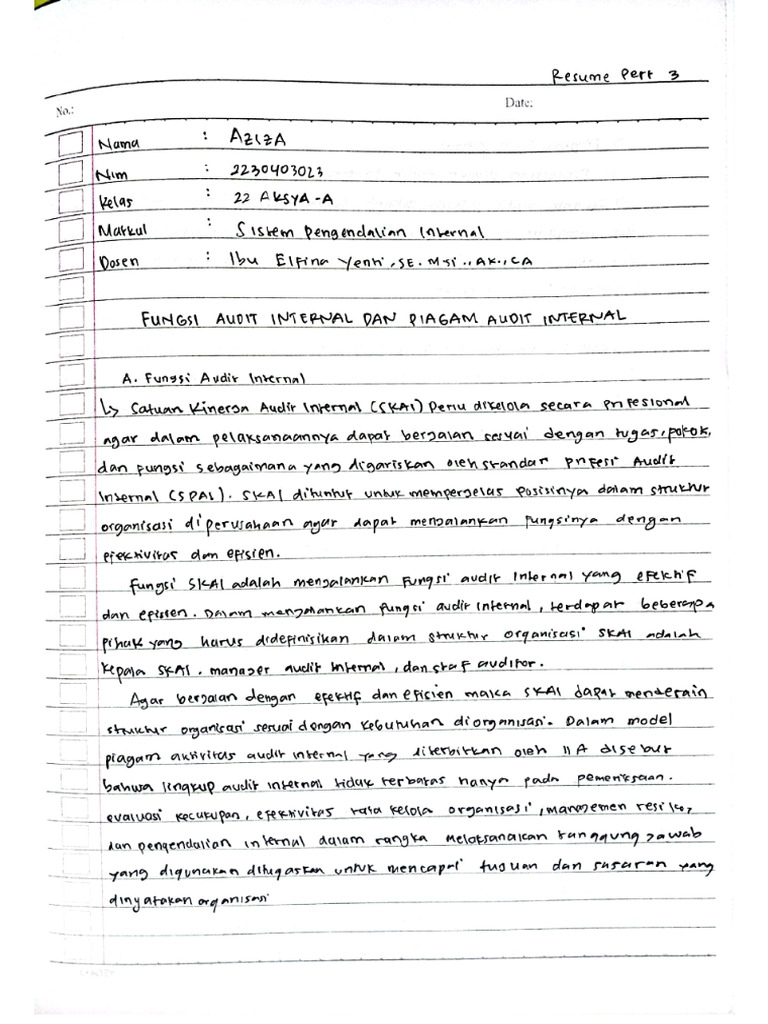 Resume Pert 3
No.:
Date:
Nama : AZIZA
Nim : 2230403023
Kelas : 22 AKSYA-A
Matkul : Sistem Pengendalian Internal
Dosen : Ibu Elfina Yenti, SE. Msi., AK., CA
FUNGSI AUDIT INTERNAL DAN PIAGAM AUDIT INTERNAL
A. Fungsi Audit Internal
↳ Satuan Kinerja Audit Internal (SKAI) Perlu dikelola secara profesional
agar dalam pelaksanaannya dapat berjalan sesuai dengan tugas, pokok,
dan fungsi sebagaimana yang digariskan oleh standar profesi Audit
Internal (SPAI). SKAI dituntut untuk memperjelas posisinya dalam struktur
organisasi diperusahaan agar dapat menjalankan fungsinya dengan
efektivitas dan efisien.
Fungsi SKAI adalah menjalankan fungsi audit internal yang efektif
dan efisien. Dalam menjalankan fungsi audit internal, terdapat beberapa
pihak yang harus didefinisikan dalam struktur organisasi SKAI adalah
kepala SKAI, manager audit internal, dan staf auditor.
Agar berjalan dengan efektif dan efisien maka SKAI dapat mendesain
struktur organisasi sesuai dengan kebutuhan diorganisasi. Dalam model
piagam aktivitas audit internal yang diterbitkan oleh IIA disebut
bahwa lingkup audit internal tidak terbatas hanya pada pemeriksaan.
evaluasi kecukupan, efektivitas tata kelola organisasi, manajemen resiko,
dan pengendalian internal dalam rangka melaksanakan tanggung jawab
yang digunakan ditugaskan untuk mencapai tujuan dan sasaran yang
dinyatakan organisasi